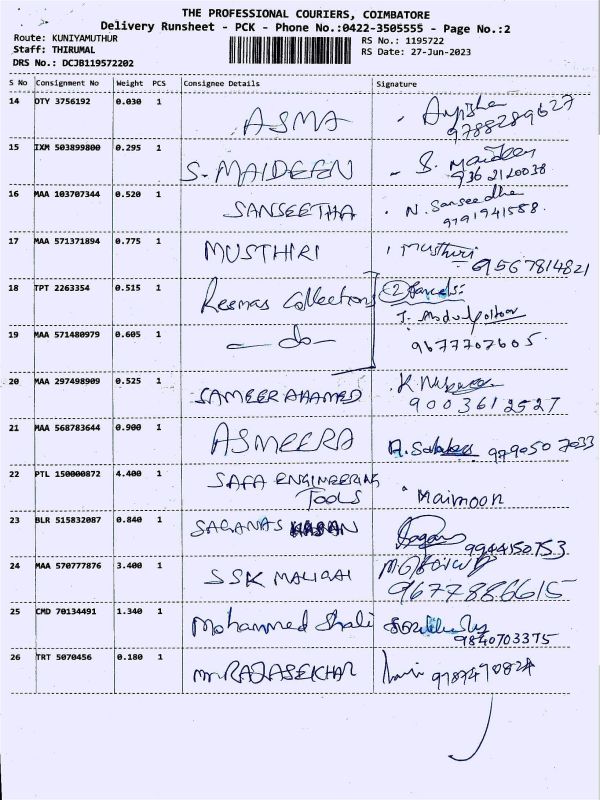 THE PROFESSIONAL COURIERS, COIMBATORE
Delivery Runsheet - PCK - Phone No.:0422-3505555 - Page No.:2
Route: KUNIYAMUTHUR
Staff: THIRUMAL
DRS No.: DCJB119572202
RS No.: 1195722
RS Date: 27-Jun-2023
S No Consignment No Weight PCS Consignee Details Signature
14 DTY 3756192 0.030 1 ASMA Ayisha
9788289627
15 IXM 503899800 0.295 1 S. MAIDEEN S. Maideen
9362120038
16 MAA 103707344 0.520 1 SANSEETHA N. Sanseedha
9791941558
17 MAA 571371894 0.775 1 MUSTHIRI Musthiri
9567814821
18 TPT 2263354 0.515 1 Reemas Collection 2 Parcels:
19 MAA 571480979 0.605 1 - do - 9677707605
20 MAA 297498909 0.525 1 SAMEER AHAMED K.
9003612527
21 MAA 568783644 0.900 1 ASMEERA 9790507033
22 PTL 150000872 4.400 1 SAFA ENGINEERING
TOOLS Maimoon
23 BLR 515832087 0.840 1 SAGANAS HASAN
9944150753
24 MAA 570777876 3.400 1 SSK MALIGAI
9677886615
25 CMD 70134491 1.340 1 Mohammed Shali
9840703375
26 TRT 5070456 0.180 1 Mr RAJASEKHAR 9787490824